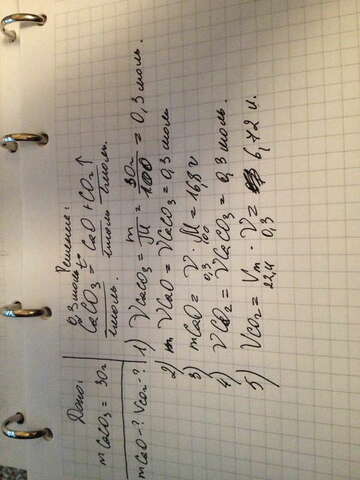 Дано:
m CaCO₃ = 30г
m CaO - ? V CO₂ - ?
Решение:
0,3 моль t°
CaCO₃ = CaO + CO₂ ↑
1моль. 1моль 1моль.
1) νCaCO₃ = m/M = 30г/100 = 0,3 моль.
2) νCaO = νCaCO₃ = 0,3 моль
3) mCaO = ν · M = 16,8 г
0,3
4) νCO₂ = νCaCO₃ = 0,3 моль.
5) VCO₂ = Vm · ν = 6,72 л.
22,4 0,3